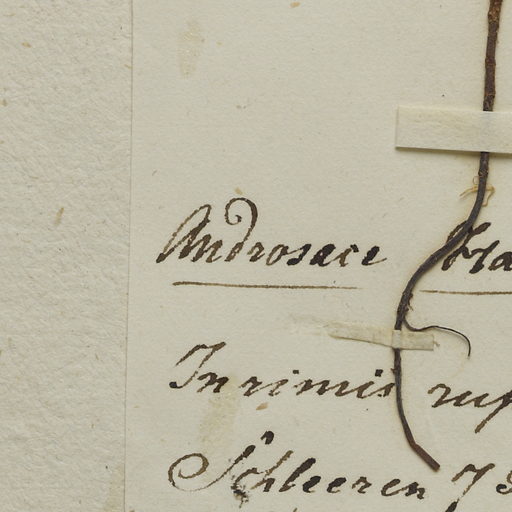 Androsace
In rimis
Schleeren